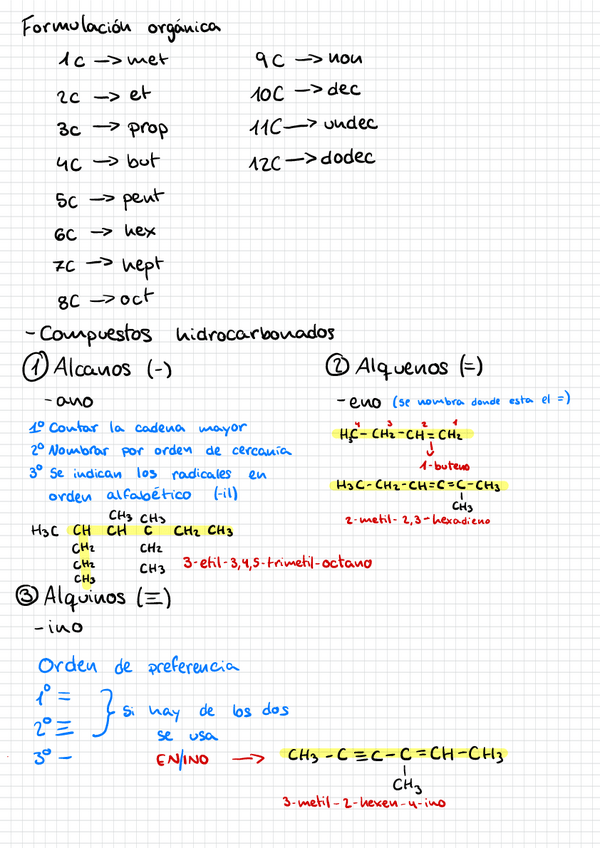 Formulación orgánica
1C → met
2C → et
3C → prop
4C → but
5C → pent
6C → hex
7C → hept
8C → oct
9C → non
10C → dec
11C → undec
12C → dodec
- Compuestos hidrocarbonados
① Alcanos (-)
- ano
1º Contar la cadena mayor
2º Nombrar por orden de cercanía
3º Se indican los radicales en
orden alfabético (-il)
CH₃ CH₃
H₃C CH CH C CH₂ CH₃
CH₂ CH₂
CH₂ CH₃
CH₃
3-etil-3,4,5-trimetil-octano
② Alquenos (=)
- eno (se nombra donde esta el =)
4 3 2 1
H₃C - CH₂ - CH = CH₂
1-buteno
H₃C - CH₂ - CH = C = C - CH₃
CH₃
2-metil-2,3-hexadieno
③ Alquinos (≡)
- ino
Orden de preferencia
1º =
2º ≡
3º -
si hay de los dos
se usa
EN/INO → CH₃ - C ≡ C - C = CH - CH₃
CH₃
3-metil-2-hexen-4-ino